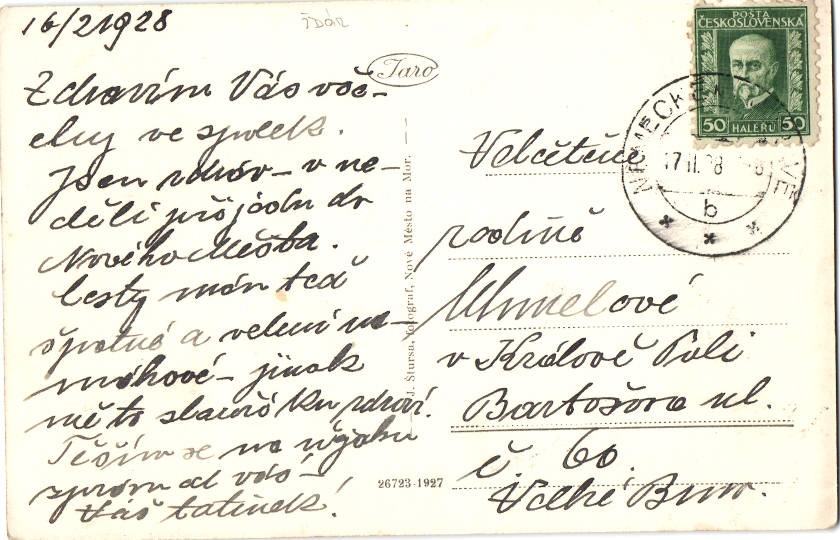 16/2 1928
ŽDÁR
Taro
Zdravím Vás vše-
chny ve spolek.
Jsem zdráv - v ne-
děli přijedu do
Nového Města.
Cesty mám teď
špatné a velmi na-
máhavé - jinak
mě to slouží ku zdraví.
Těším se na nějakou
zprávu od vás -
Váš tatínek!
J. Štursa, fotograf, Nové Město na Mor.
26723-1927
POŠTA
ČESKOSLOVENSKÁ
50 HALÉŘŮ 50
17 II. 28
b
Velectěné
rodině
Chmelové
v Králově Poli
Bartošova ul.
č. 60.
Velké Brno.